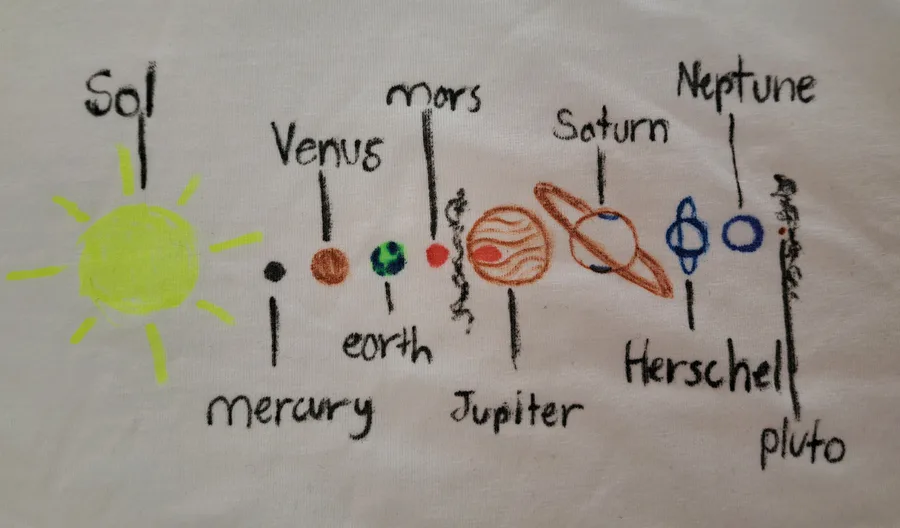 Sol
mercury
Venus
earth
mars
Jupiter
Saturn
Herschel
Neptune
pluto